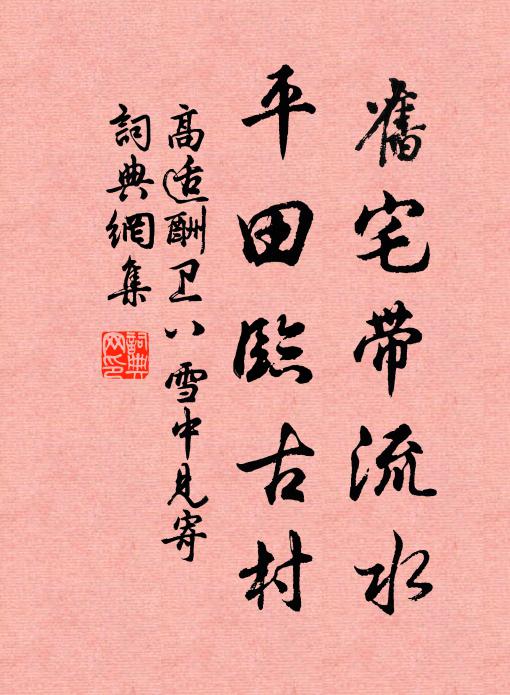 舊宅帶流水
平田臨古村
高适酬卫八雪中見寄
詞典網集
詞典網印